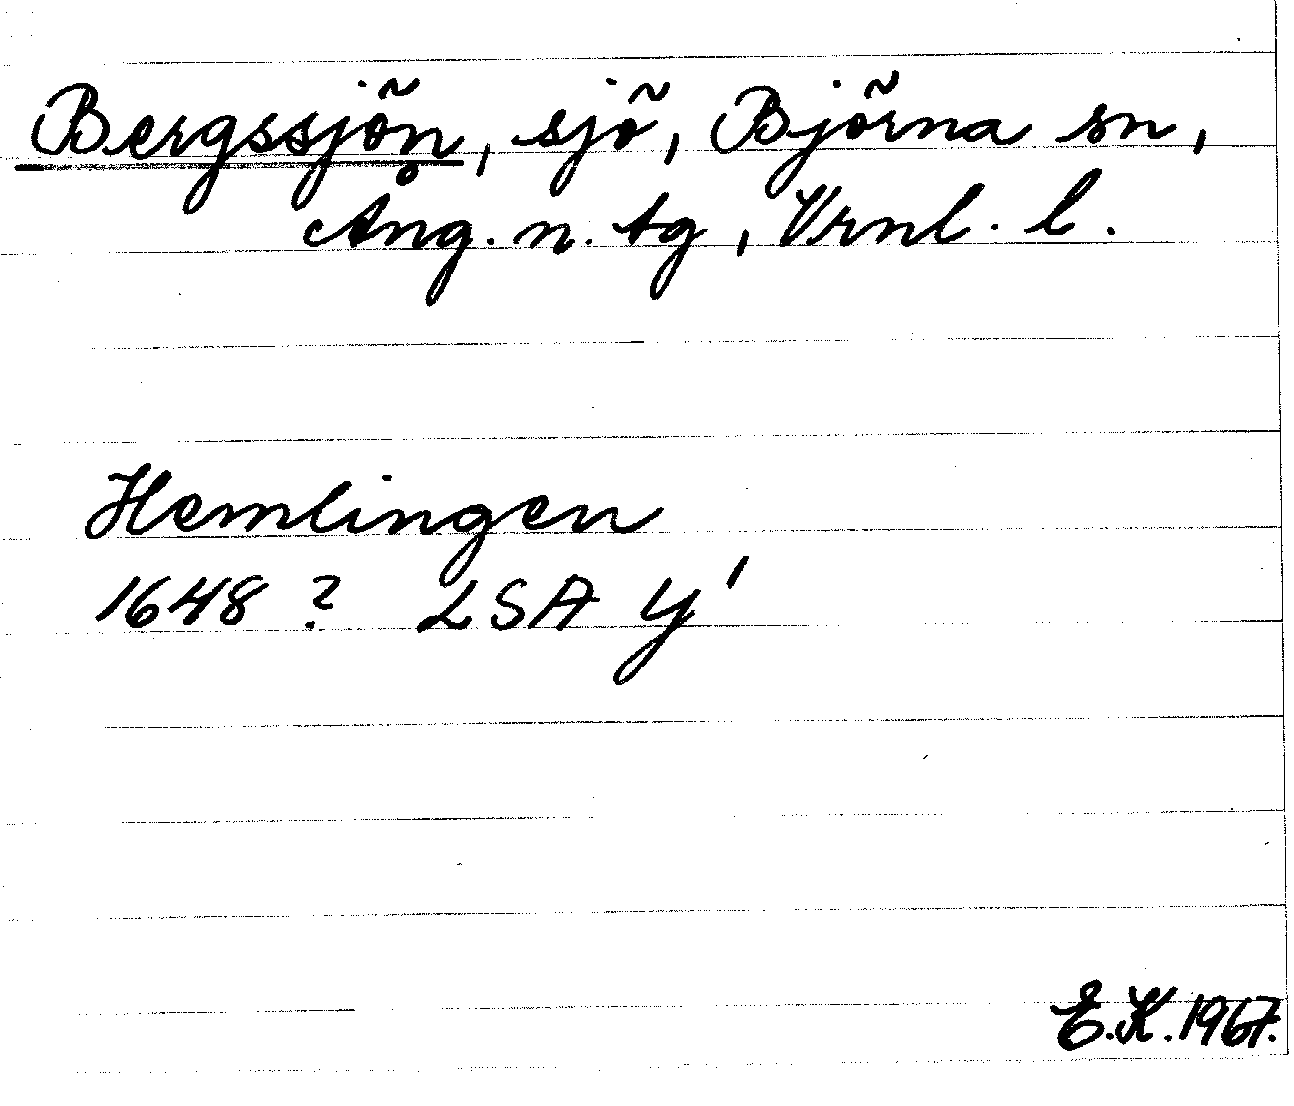 Bergssjön, sjö, Björna sn,
Ång. n. tg, Vrnl. l.
Hemlingen
1648 ? LSA Y'
E.K. 1967.